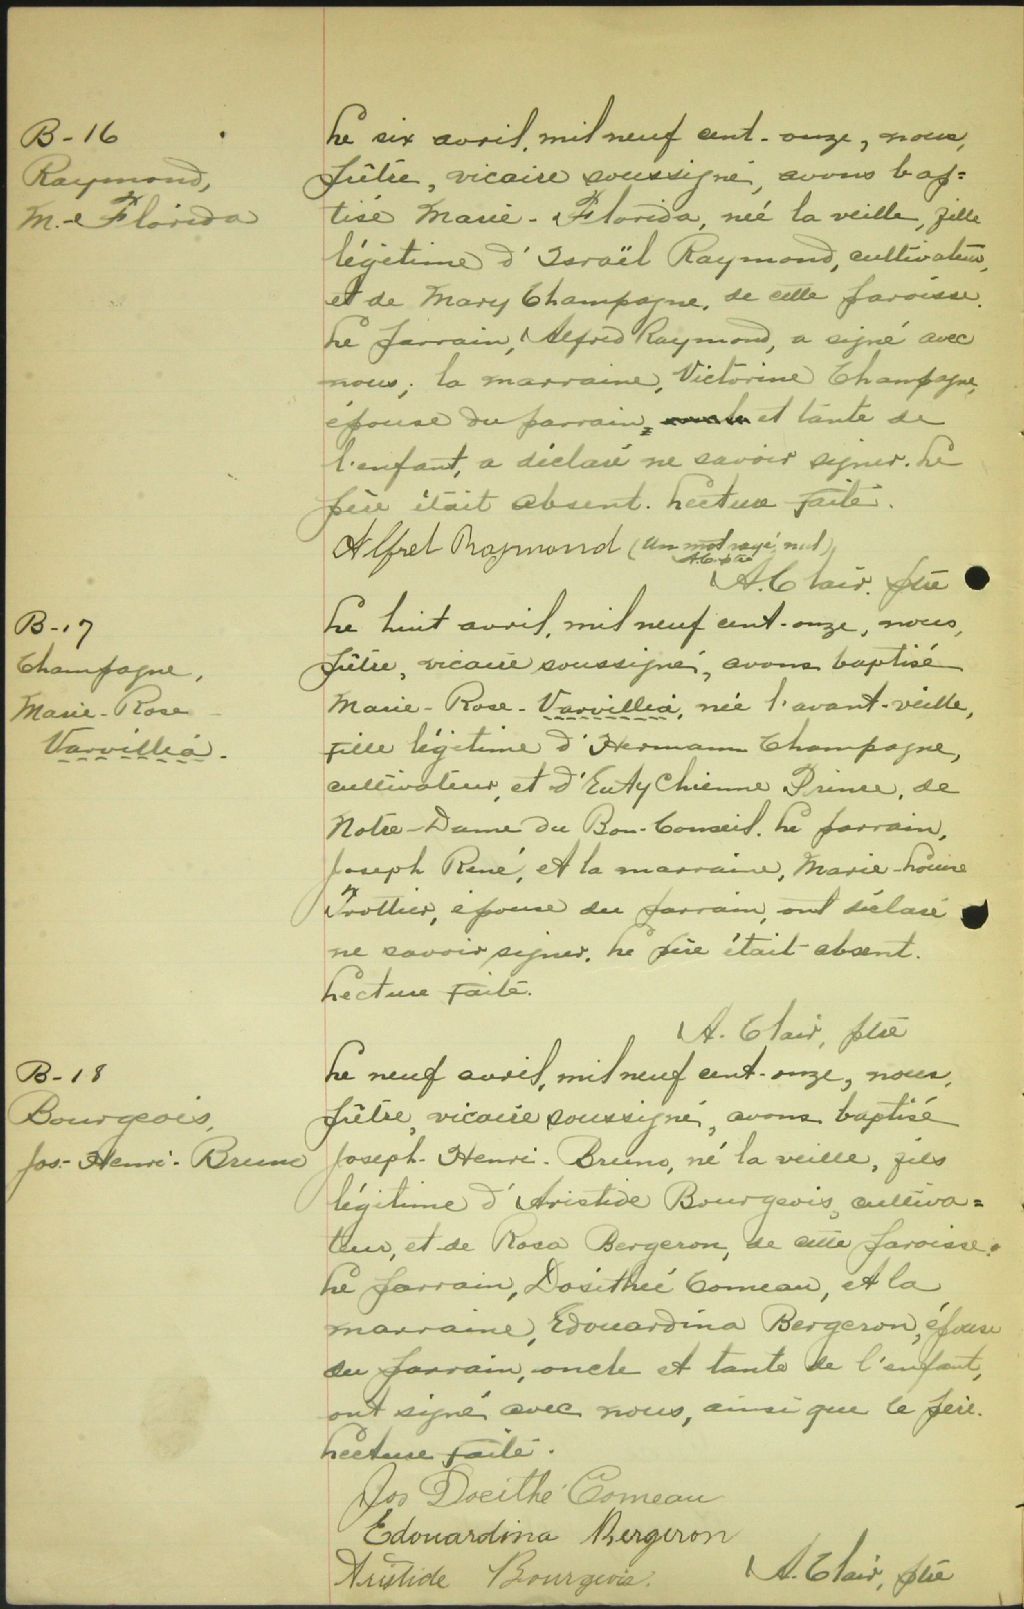 B-16
Raymond,
M.-e Florida
Le six avril, mil neuf cent-onze, nous,
prêtre, vicaire soussigné, avons bap=
tisé Marie-Florida, née la veille, fille
légitime d'Israël Raymond, cultivateur,
et de Mary Champagne, de cette paroisse.
Le parrain, Alfred Raymond, a signé avec
nous; la marraine, Victorine Champagne,
épouse du parrain, et tante de
l'enfant, a déclaré ne savoir signer. Le
père était absent. Lecture faite.
Alfret Raymond (un mot rayé nul)
A.C. ptre
A. Clair, ptre
B-17
Champagne,
Marie-Rose
Varvillia.
Le huit avril, mil neuf cent-onze, nous,
prêtre, vicaire soussigné, avons baptisé
Marie-Rose-Varvillia, née l'avant-veille,
fille légitime d'Hermann Champagne,
cultivateur, et d'Eutychienne Prince, de
Notre-Dame du Bon-Conseil. Le parrain,
Joseph René, et la marraine, Marie-Louise
Trottier, épouse du parrain, ont déclaré
ne savoir signer. Le père était absent.
Lecture faite.
A. Clair, ptre
B-18
Bourgeois,
Jos.-Henri-Bruno
Le neuf avril, mil neuf cent-onze, nous,
prêtre, vicaire soussigné, avons baptisé
Joseph-Henri-Bruno, né la veille, fils
légitime d'Aristide Bourgeois, cultiva=
teur, et de Rosa Bergeron, de cette paroisse.
Le parrain, Dosithée Comeau, et la
marraine, Edouardina Bergeron, épouse
du parrain, oncle et tante de l'enfant,
ont signé avec nous, ainsi que le père.
Lecture faite.
Jos Docithé Comeau
Edouardina Bergeron
Aristide Bourgeois.
A. Clair, ptre